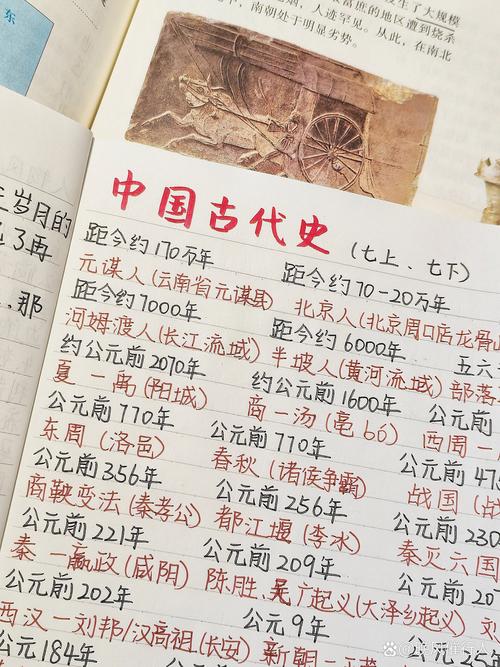 东
发生了大规模
富庶的地区遭到烧杀
烟，人迹罕见。从此，在南北
中，南朝处于明显劣势。
岁月的
3再
那
中国古代史（七上、七下）
距今约170万年
元谋人（云南省元谋县）
距今约70-20万年
北京人（北京周口店龙骨山
距今约7000年
河姆渡人（长江流域）
距今约6000年
半坡人（黄河流域）
五六
部落
约公元前2070年
夏一禹（阳城）
约公元前1600年
商一汤（亳66）
公元
西周一
公元前770年
东周（洛邑）
公元前770年
春秋（诸侯争霸）
公元前47
战国（战
公元前356年
商鞅变法（秦孝公）
公元前256年
都江堰（李水）
公元前230
秦灭六国
公元前221年
秦一嬴政（咸阴）
公元前209年
陈胜、吴广起义（大泽乡起义）
公元前20
刘
公元前202年
西汉一刘邦/汉高祖（长安）
公元9年
新朝一
公元
公元184年